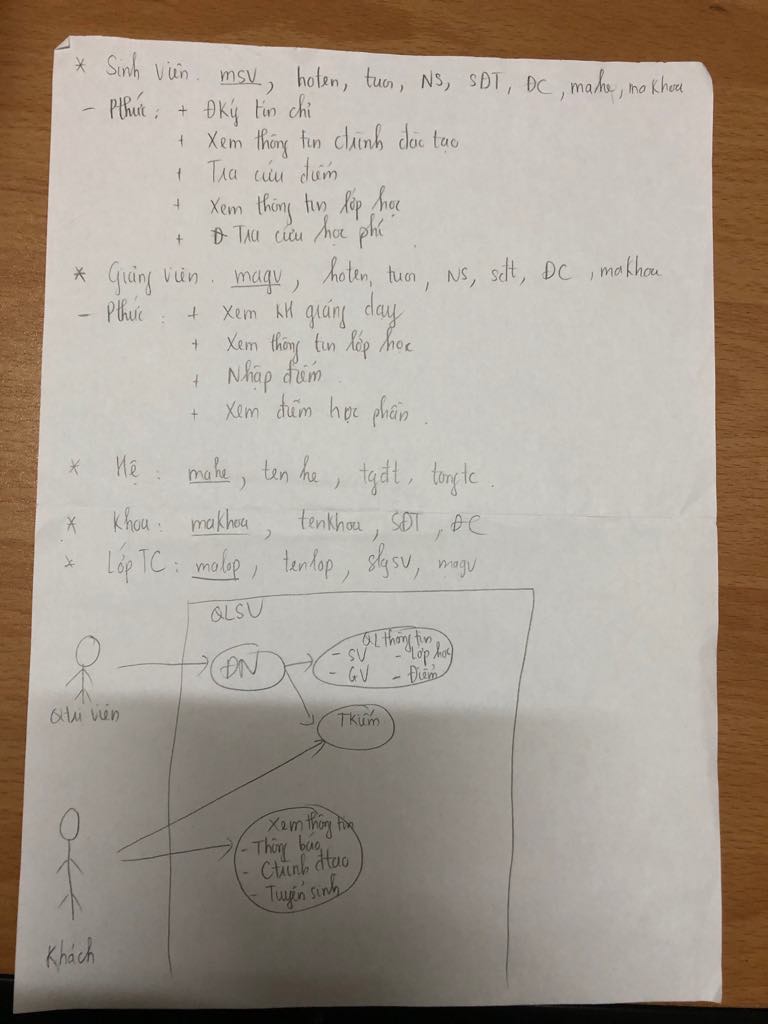 * Sinh viên. msv, hoten, tuoi, NS, SĐT, ĐC, mahe, makhoa
- Pthức: + ĐKý tín chỉ
+ Xem thông tin ctrình đào tạo
+ Tra cứu điểm
+ Xem thông tin lớp học
+ Tra cứu học phí
* Giảng viên. magv, hoten, tuoi, NS, sđt, ĐC, makhoa
- Pthức: + Xem KH giảng dạy
+ Xem thông tin lớp học
+ Nhập điểm
+ Xem điểm học phần.
* Hệ: mahe, ten he, tgđt, tongtc.
* Khoa: makhoa, tenkhoa, SĐT, ĐC
* Lớp TC: malop, tenlop, slgsv, magv
QLSV
QL thông tin
- SV - Lớp học
- GV - Điểm
ĐN
Qtrị viên
TKiếm
Xem thông tin
- Thông báo
- Ctrình đtạo
- Tuyển sinh
Khách